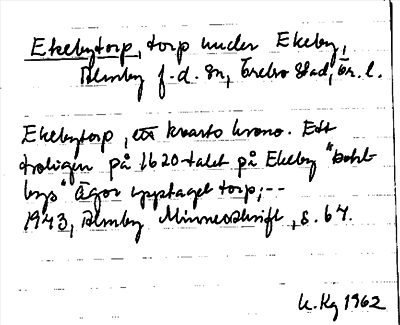 Ekebytorp, torp under Ekeby,
Almby f.d. sn, Örebro stad, Ör. l.
Ekebytorp, ett kvarts krono. Ett
troligen på 1620-talet på Ekeby "bohl-
bys" ägor upptaget torp; --
1943, Almby Minnesskrift, s. 64.
K. Kg 1962